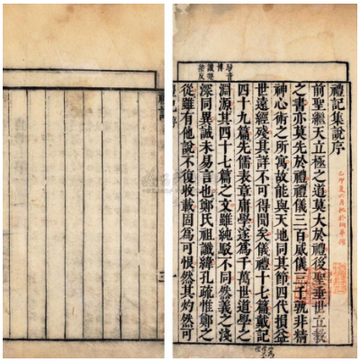 禮記集說序
前聖繼天立極之道莫大於禮後聖垂世立教
之書亦莫先於禮禮儀三百威儀三千孰非精
神心術之所寓故能與天地同其節四代損益
世遠經殘其詳不可得聞矣儀禮十七篇戴記
四十九篇先儒表章庸學遂爲千萬世道學之
淵源其四十七篇之文雖純駁不同然義之淺
深同異誠未易言也鄭氏祖讖緯孔疏惟鄭之
從雖有他說不復收載固爲可恨然其灼然可